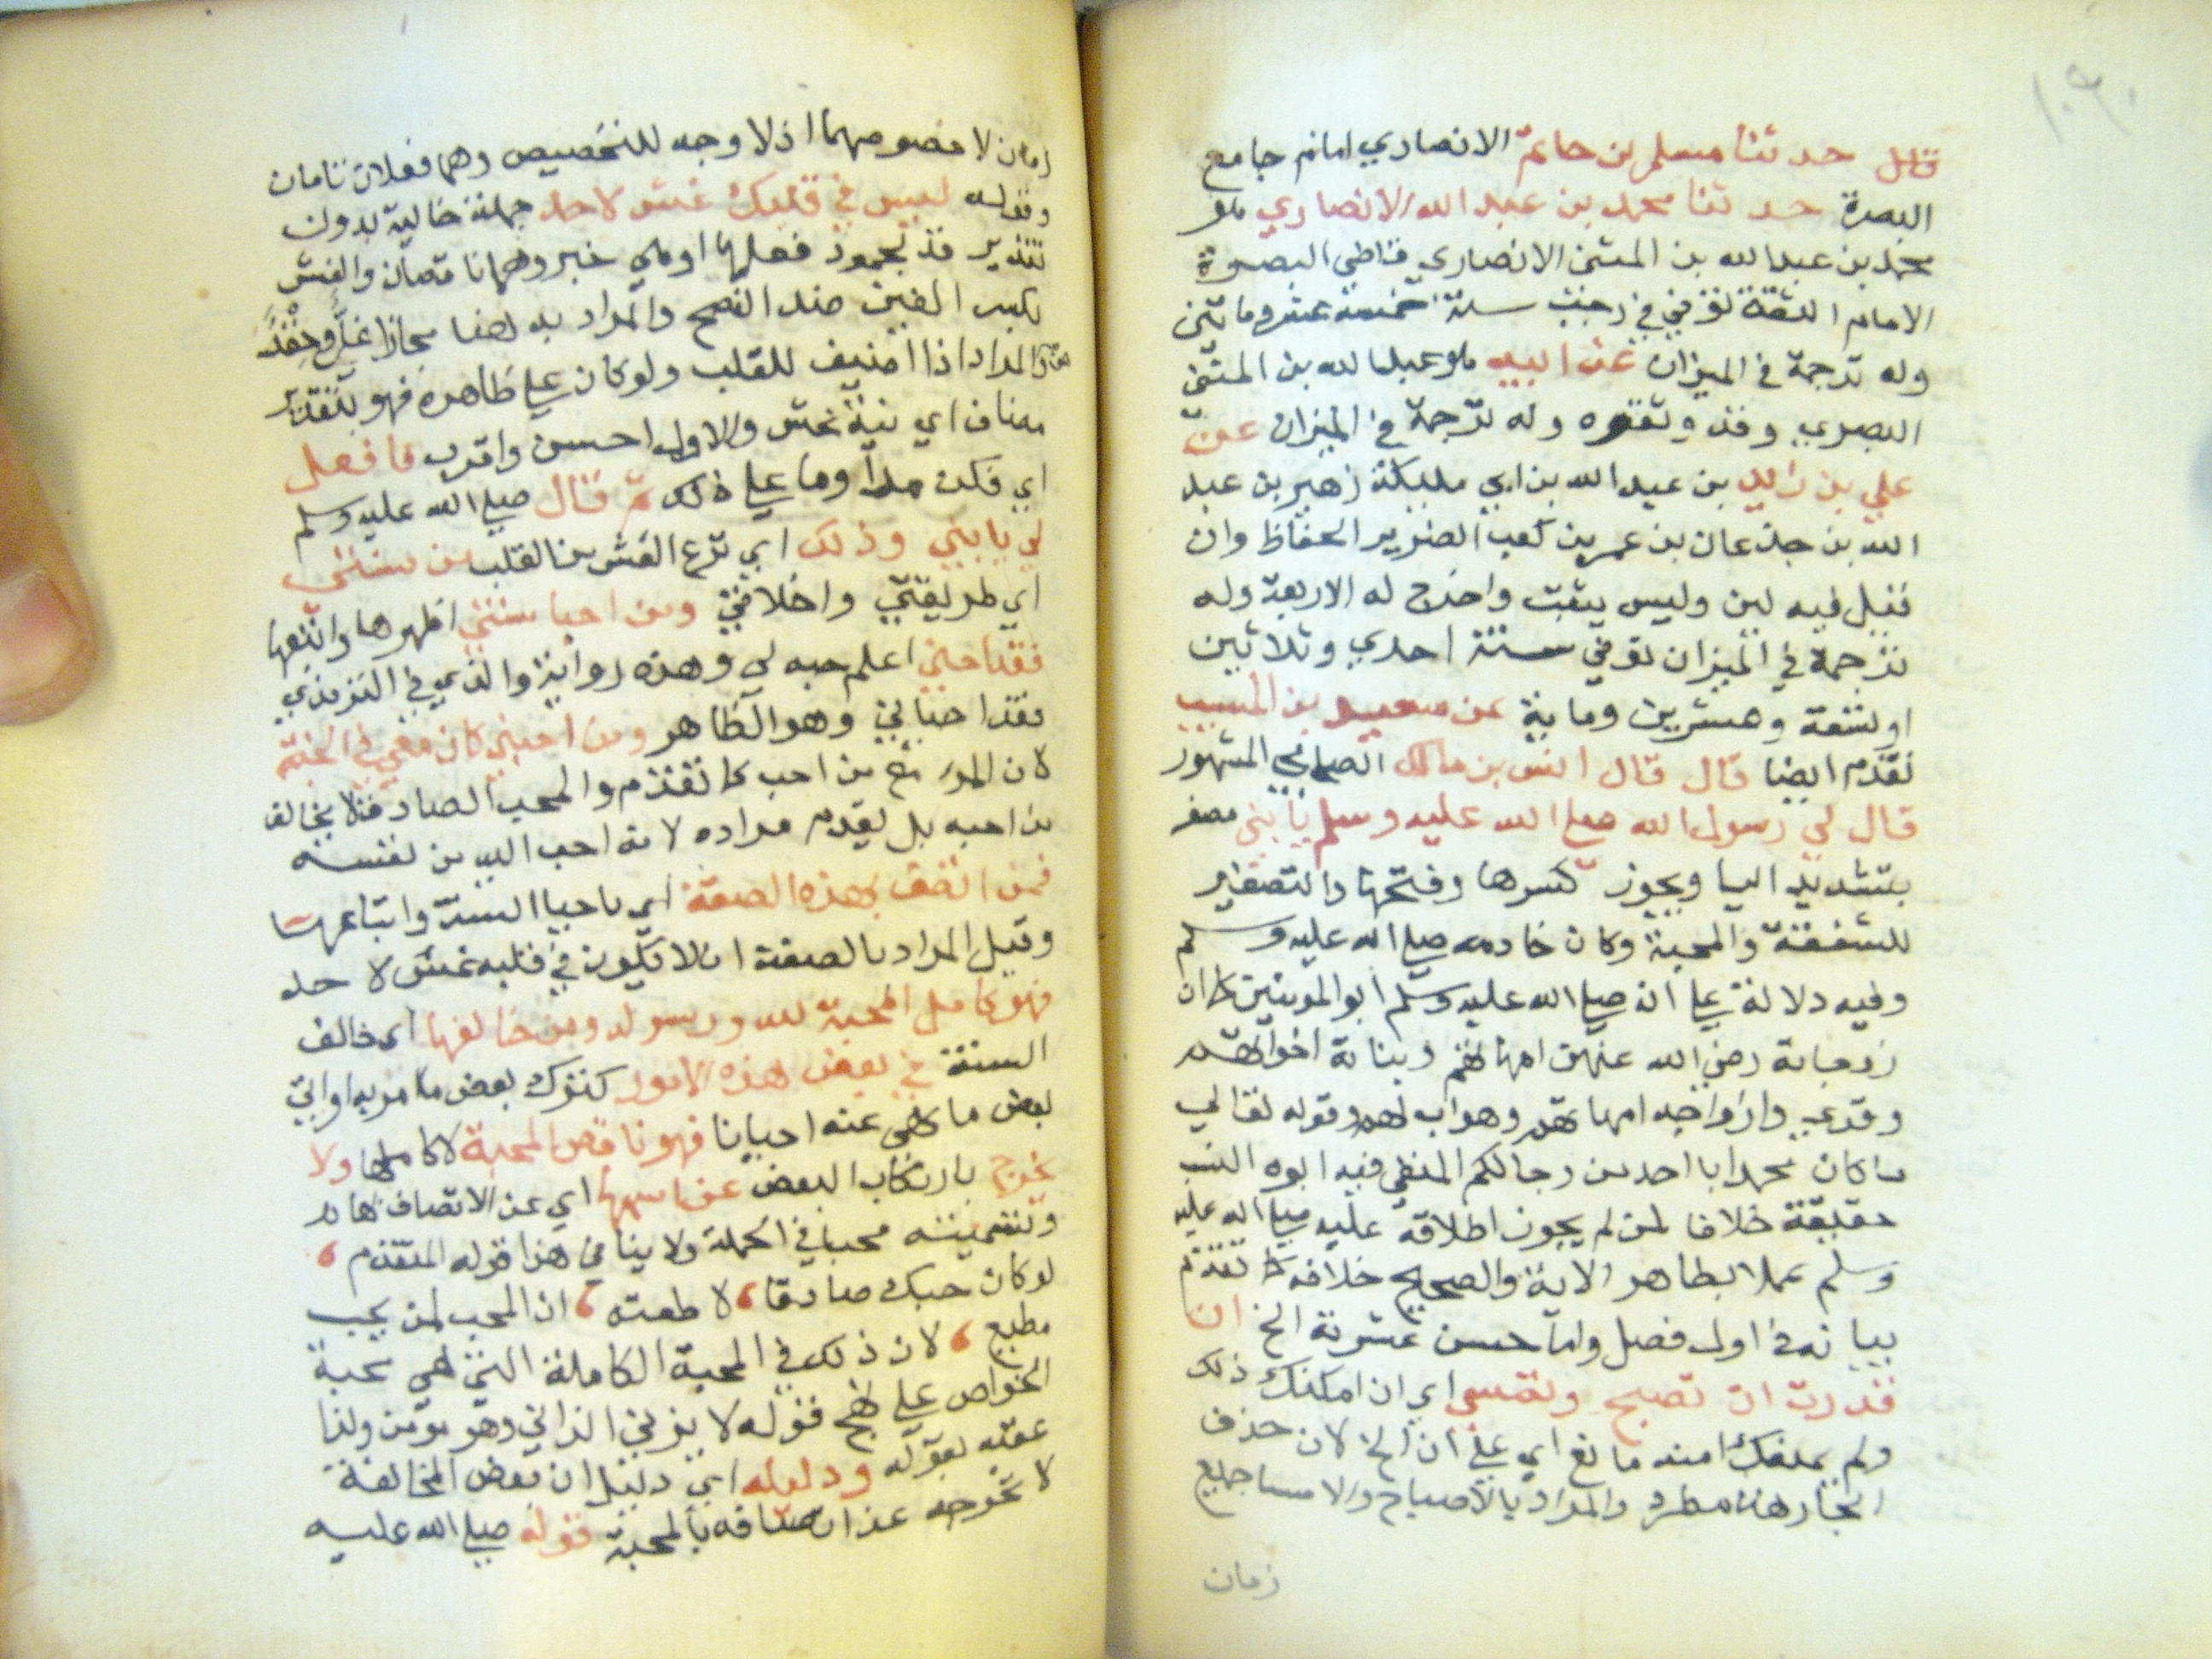 ١٠٩٠
قال حدثنا مسلم بن حاتم الانصاري امام جامع
البصرة حدثنا محمد بن عبد الله الانصاري هو
محمد بن عبد الله بن المثنى الانصاري قاضي البصرة
الامام الثقة توفي في رجب سنة خمسة عشر ومائتين
وله ترجمة في الميزان عن ابيه هو عبد الله بن المثنى
البصري وقد وثقوه وله ترجمة في الميزان عن
علي بن زيد بن عبد الله بن ابي مليكة زهير بن عبد
الله بن جدعان بن عمر بن كعب الضرير الحفاظ وان
قيل فيه لين وليس يثبت واخرج له الاربعة وله
ترجمة في الميزان توفي سنة احدي وثلاثين
او تسعة وعشرين وماية عن سعيد بن المسيب
تقدم ايضا قال قال انس بن مالك الصحابي المشهور
قال لي رسول الله صلي الله عليه وسلم يا بني مصغر
بتشديد اليا ويجوز كسرها وفتحها والتصغير
للشفقة والمحبة وكان خادمه صلي الله عليه وسلم
وفيه دلالة علي انه صلي الله عليه وسلم ابو المومنين كما ان
زوجاته رضي الله عنهن امهاتهم وبناته اخواتهم
وقري وازواجه امهاتهم وهو اب لهم وقوله تعالي
ما كان محمد ابا احد من رجالكم المنفي فيه ابوه النسب
حقيقة خلافا لمن لم يجوز اطلاقه عليه صلي الله عليه
وسلم عملا بظاهر الاية والصحيح خلافه كما تقدم
بيانه في اول فصل واما حسن عشرته الخ ان
قدرت ان تصبح وتمسي اي ان امكنك ذلك
ولم يمنعك منه مانع اي علي ان الخ لان حذف
الجار هنا مطرد والمراد بالاصباح والامسا جميع
زمان
زمان لا خصوصهما اذ لا وجه للتخصيص وهما فعلان تامان
وقوله ليس في قلبك غش لاحد جملة حالية بدون
تقدير قد لجمود فعلها او هي خبر وهما ناقصان والغش
بكسر الغين ضد النصح والمراد به هنا مجازا غل وحقد
هذا المراد اذا اضيف للقلب ولو كان علي ظاهره فهو بتقدير
مضاف اي نية غش والاول احسن واقرب فافعل
اي فكن هذا وما علي ذلك ثم قال صلي الله عليه وسلم
لي يا بني وذلك اي نزع الغش من القلب من سنتي
اي طريقتي واخلاقي ومن احيا سنتي اظهرها واتبعها
فقد احبني اعلم حبه لي وهذه رواية والذي في الترمذي
فقد احياني وهو الظاهر ومن احبني كان معي في الجنة
لان المرء مع من احب كما تقدم والمحب الصادق لا يخالف
من احبه بل يقدم مراده لانه احب اليه من نفسه
فمن اتصف بهذه الصفة اي باحيا السنة واتباعها
وقيل المراد بالصفة ان لا يكون في قلبه غش لاحد
فهو كامل المحبة لله ورسوله ومن خالفها اي خالف
السنة في بعض هذه الامور كترك بعض ما امر به او اتي
بعض ما نهي عنه احيانا فهو ناقص المحبة لا كاملها ولا
يخرج بارتكاب البعض عن اسمها اي عن الاتصاف بها
وتسميته محبا في الجملة ولا ينافي هذا قوله المتقدم
لو كان حبك صادقا لاطعته ان المحب لمن يحب
مطيع لان ذلك في المحبة الكاملة التي هي محبة
الخواص علي نهج قوله لا يزني الزاني وهو مومن ولذا
عقبه بقوله ودليله اي دليل ان بعض المخالفة
لا تخرجه عن اتصافه بالمحبة قوله صلي الله عليه